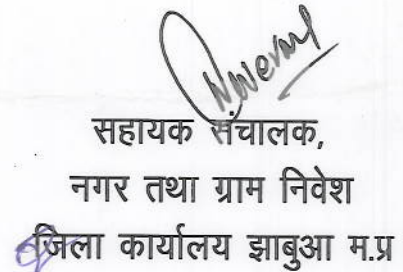 सहायक संचालक,
नगर तथा ग्राम निवेश
जिला कार्यालय झाबुआ म.प्र